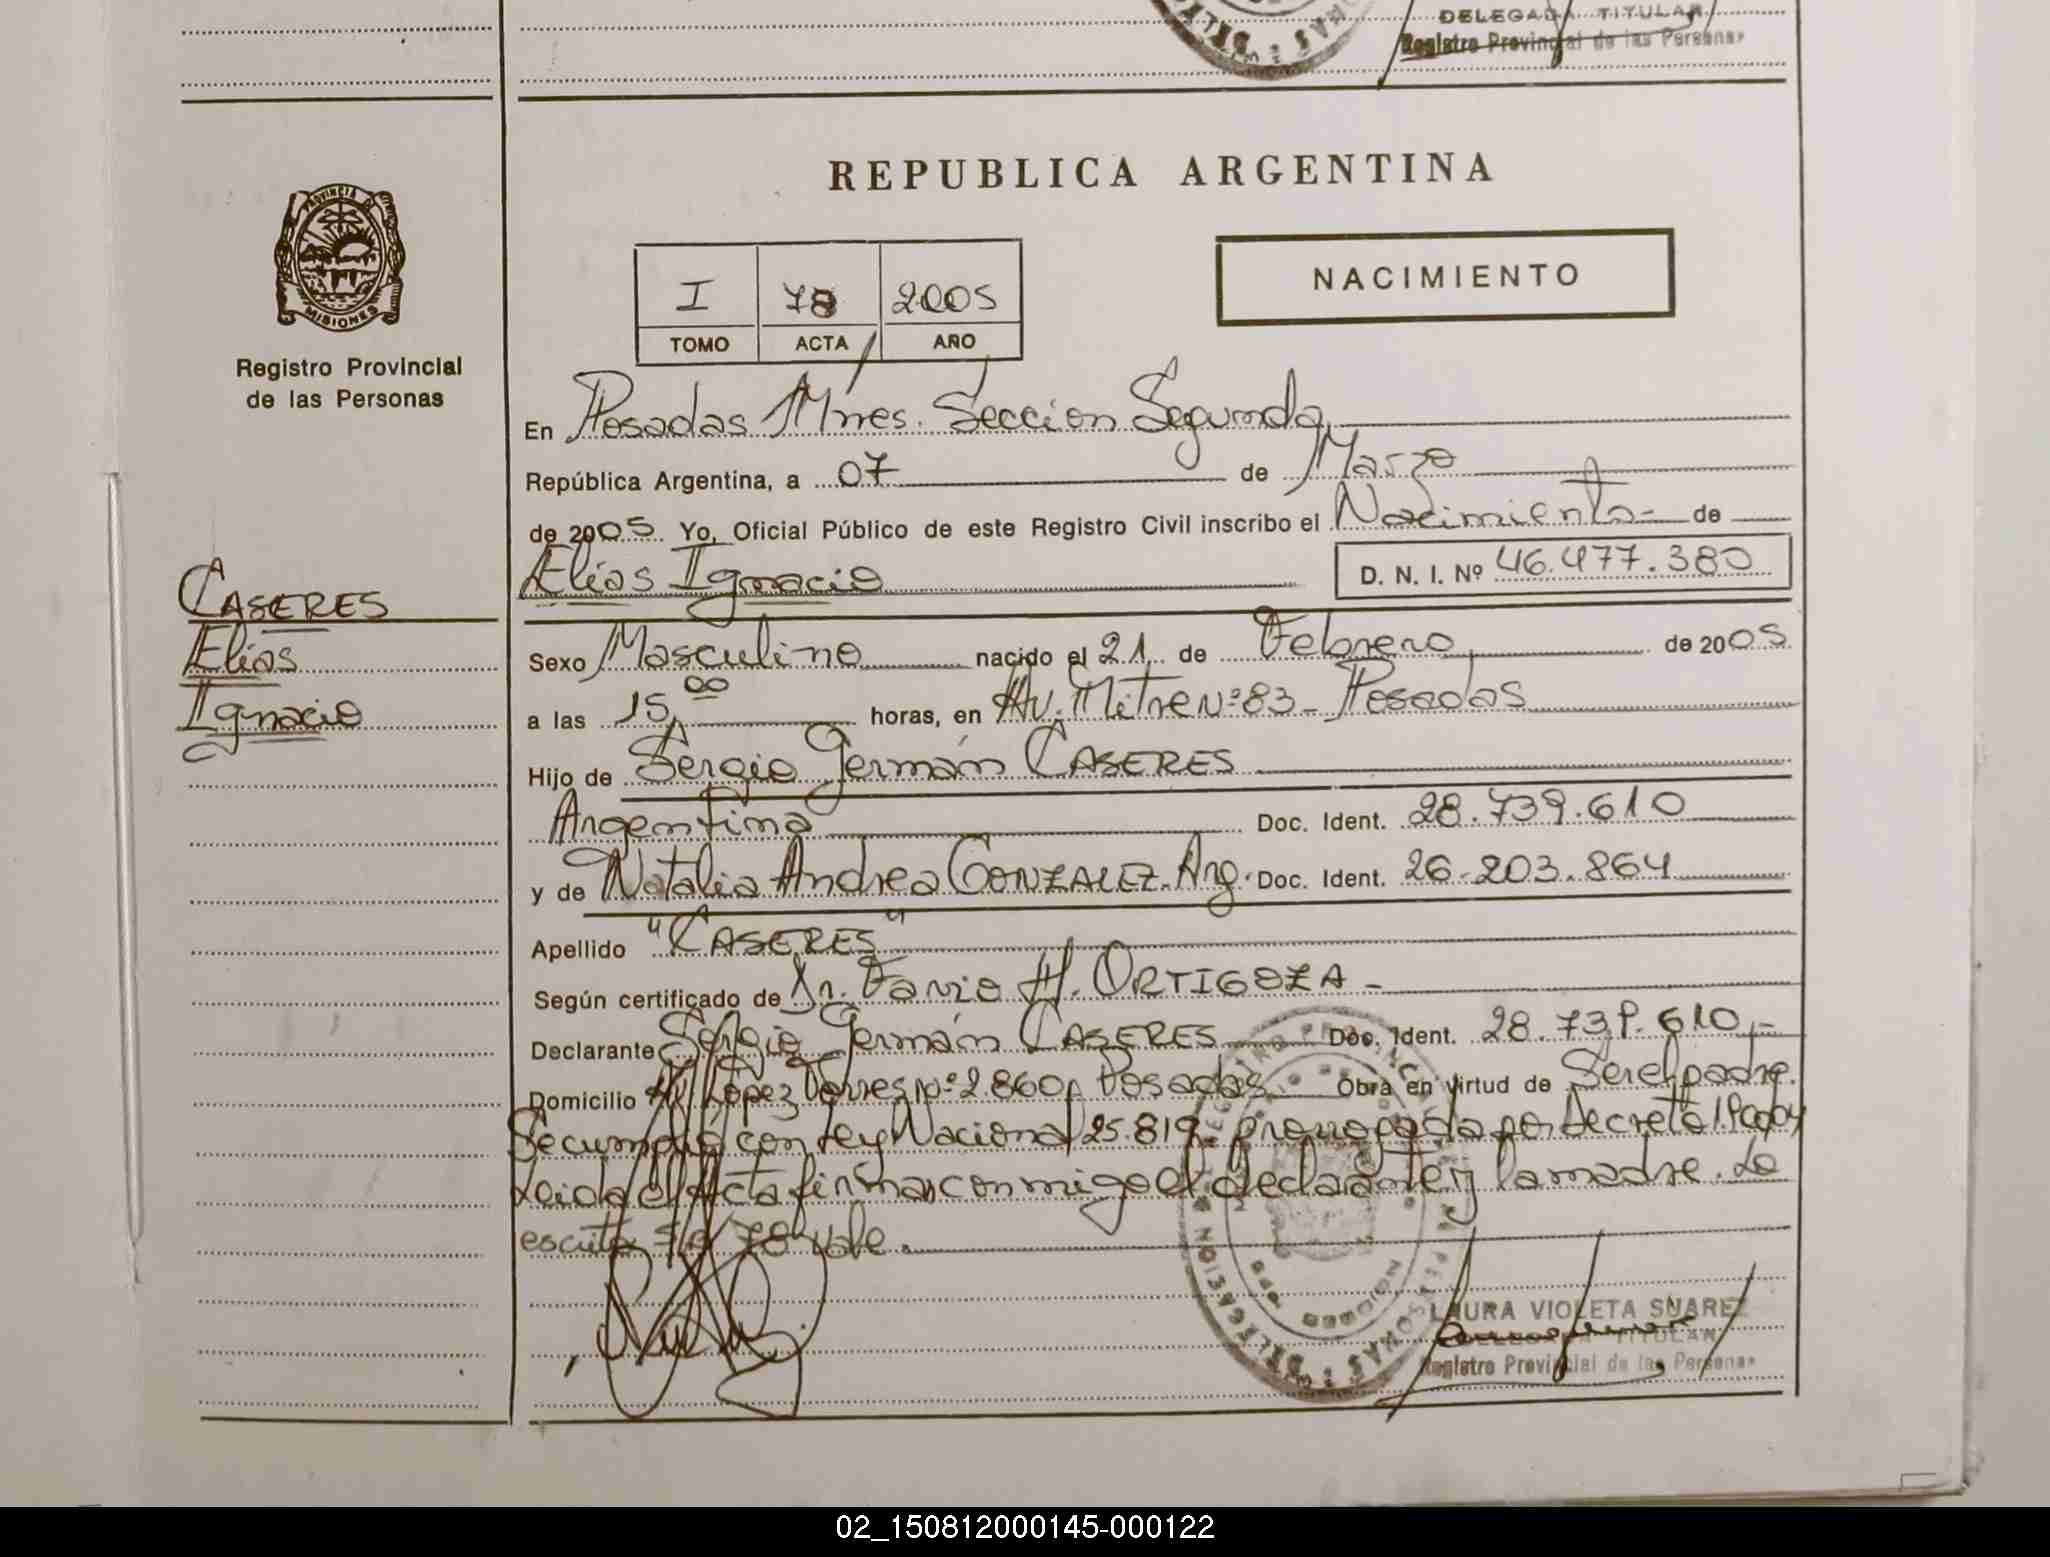 DELEGADA TITULAR
Registro Provincial de las Personas
REPUBLICA ARGENTINA
PROVINCIA DE
MISIONES
Registro Provincial
de las Personas
NACIMIENTO
I 78 2005
TOMO ACTA AÑO
En Posadas Mnes. Sección Segunda,
República Argentina, a 07 de Marzo
de 2005 Yo, Oficial Público de este Registro Civil inscribo el Nacimiento de
CASERES
Elías Ignacio D. N. I. Nº 46.477.380
Elías
Sexo Masculino nacido el 21 de Febrero, de 2005
Ignacio
a las 15,00 horas, en Av. Mitre Nº 83 - Posadas
Hijo de Sergio Germán CASERES
Argentina Doc. Ident. 28.739.610
y de Natalia Andrea GONZALEZ. Arg. Doc. Ident. 26.203.864
Apellido "CASERES"
Según certificado de Dr. Favio H. ORTIGOZA -
Declarante Sergio Germán CASERES Doc. Ident. 28.739.610,-
Domicilio Av López Torres Nº 2.860, Posadas Obra en virtud de Ser el padre.
Se cumplió con Ley Nacional 25.819 prorrogada por Decreto
Leida el Acta firman conmigo el declarante y la madre. Lo
escrito s/r 78 vale.
LAURA VIOLETA SUAREZ
TITULAR
Registro Provincial de las Personas
02_150812000145-000122